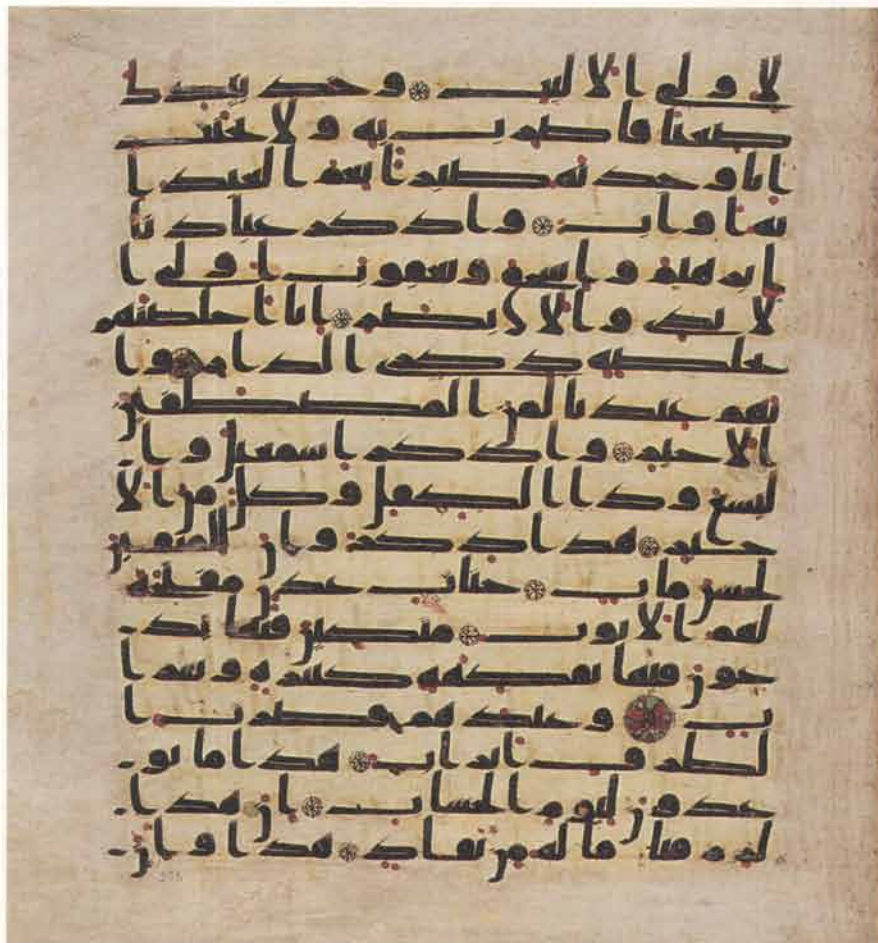 لاولى الالبب وخذ بيدك
ضغثا فاضرب به ولا تحنث
انا وجدنه صبرا نعم العبد ا
نه اواب واذكر عبادنا
ابرهيم واسحق ويعقوب اولى ا
لايدى والابصر انا اخلصنهم
بخلصة ذكرى الدار وا
نهم عندنا لمن المصطفين
الاخير واذكر اسمعيل وا
ليسع وذا الكفل وكل من الا
خير هذا ذكر وان للمتقين
لحسن ماب جنات عدن مفتحة
لهم الابوب متكين فيها يد
عون فيها بفكهة كثيرة وشرا
ب وعندهم قصرت ا
لطرف اتراب هذا ما تو
عدون ليوم الحساب ان هذا
لرزقنا ما له من نفاد هذا وان